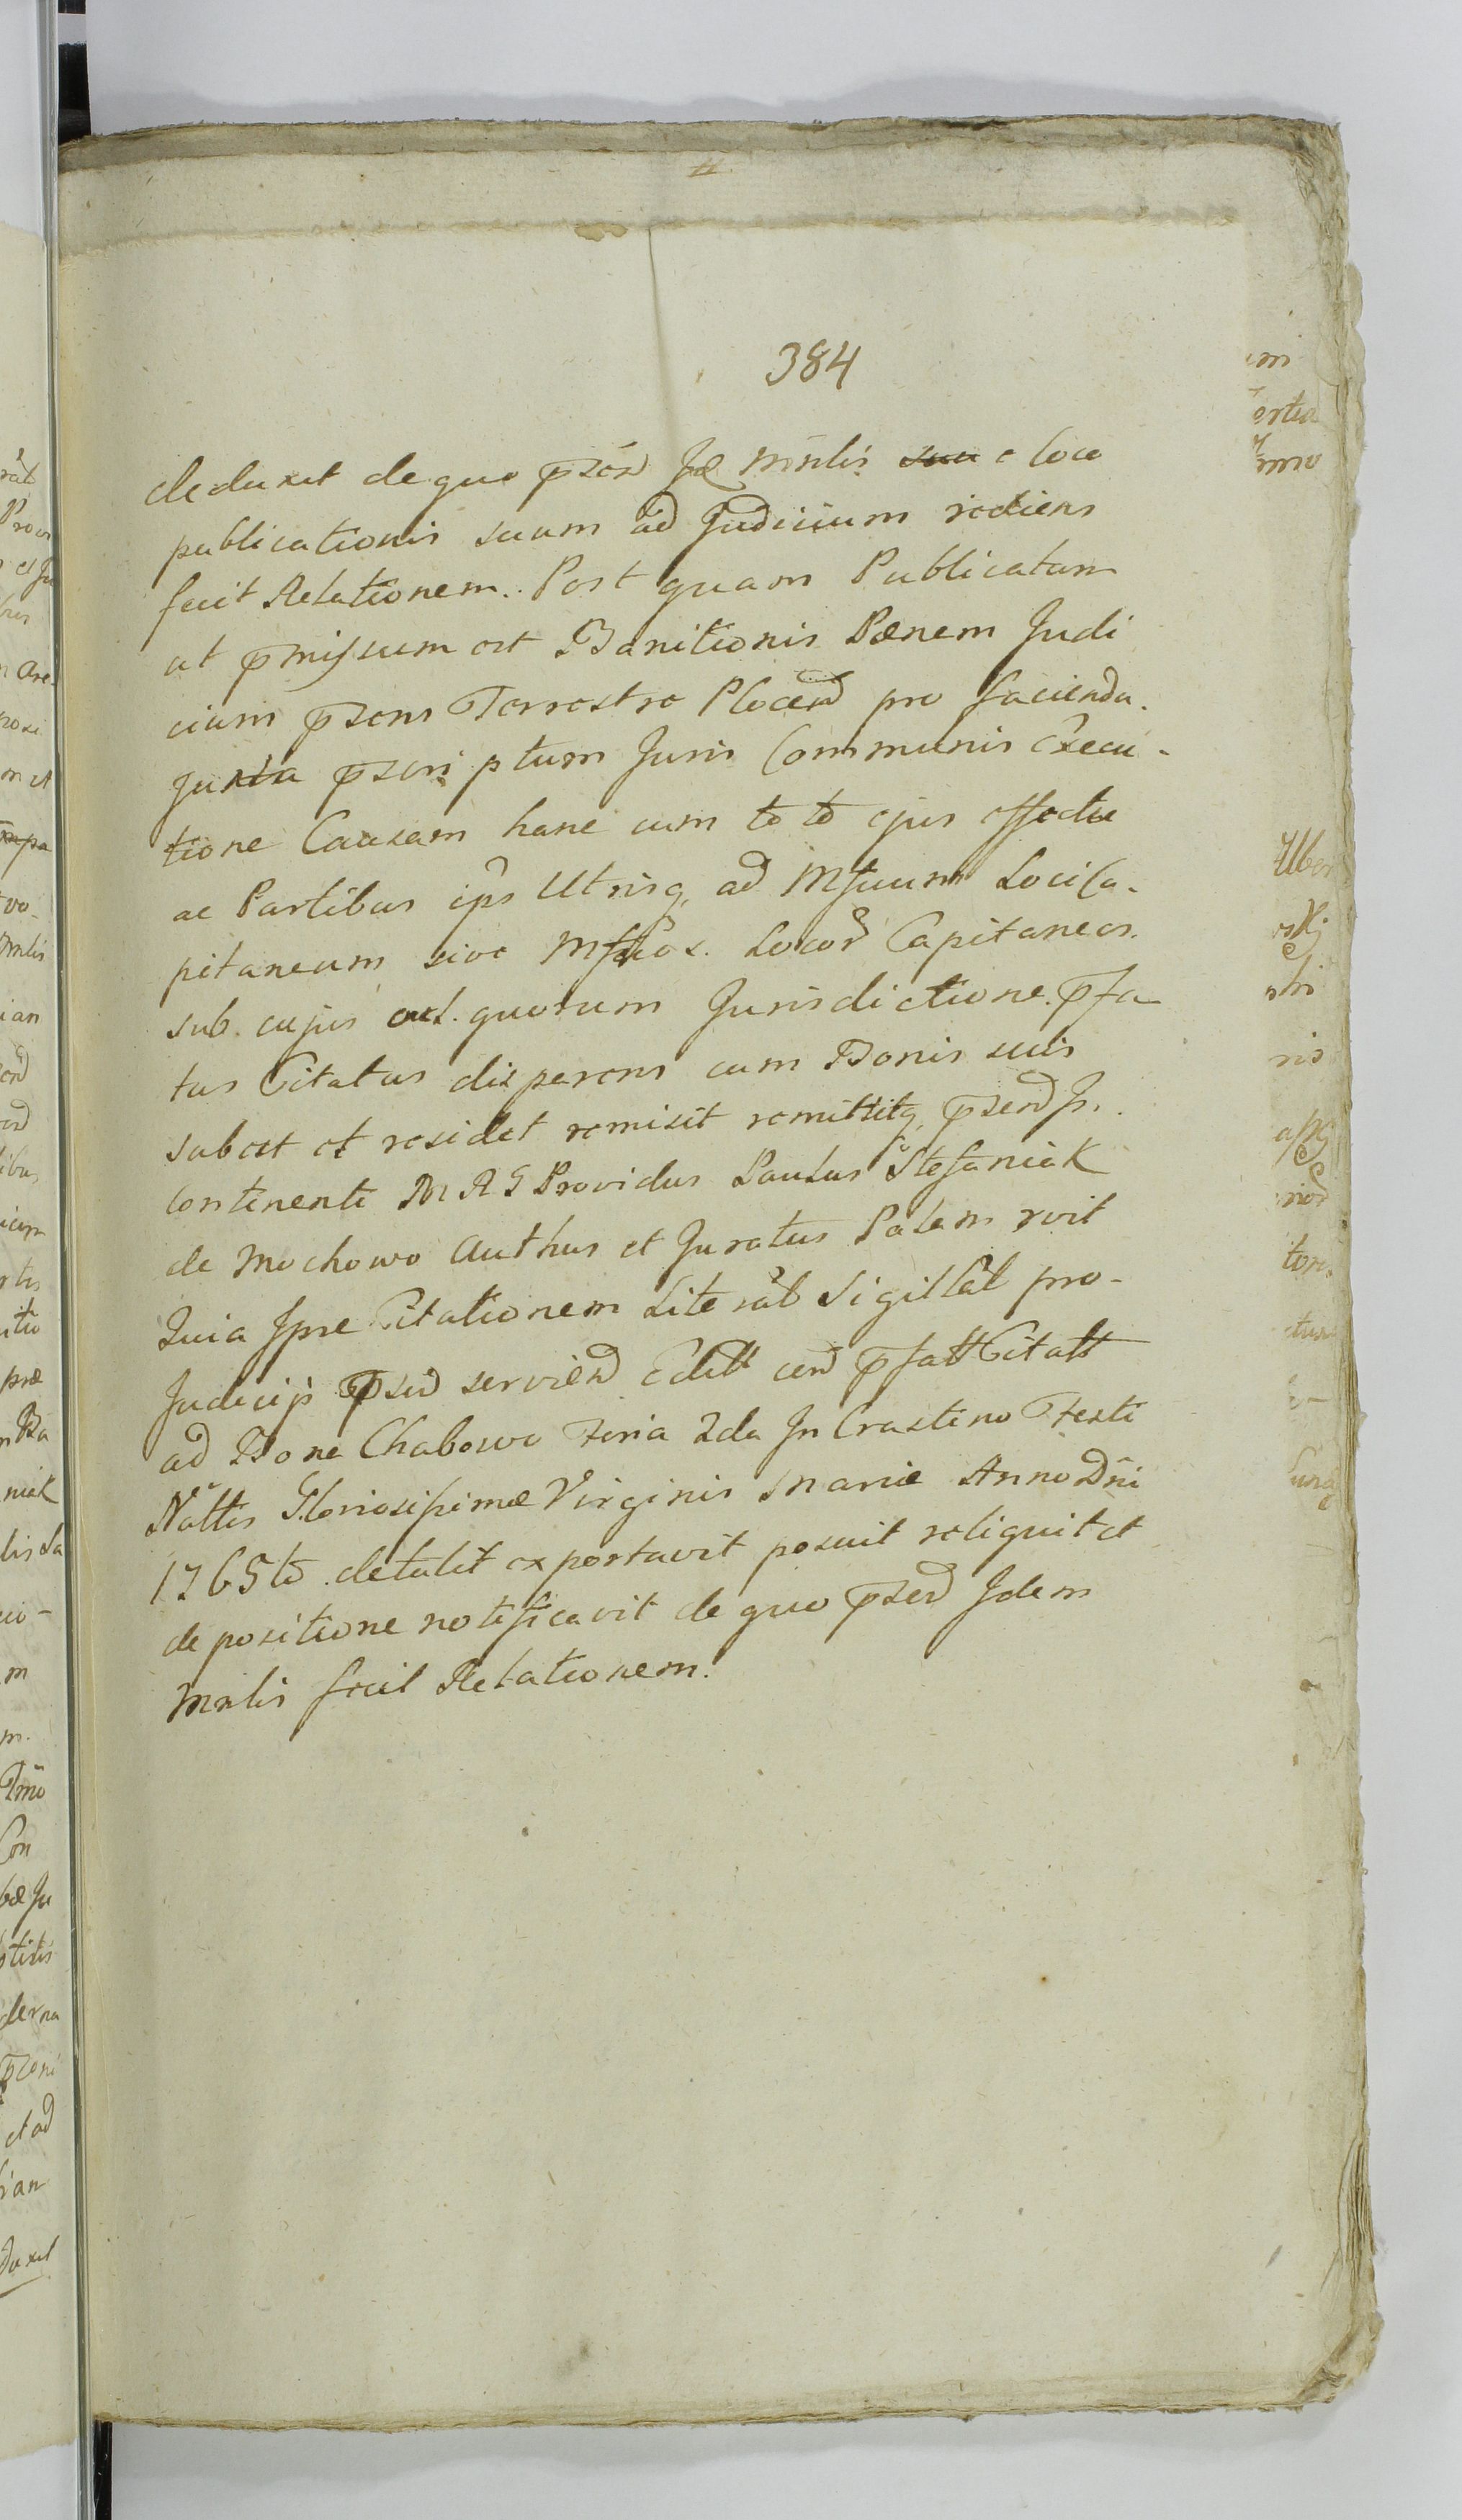 384
deduxit de quo p̄sēn Jd Mnlis suu e loco
publicationis suum ad Judicium rediens
fecit Relationem. Post quam Publicatam
ut p̄missum est Banitionis Pænem Judi
cium p̄sens Terrestre Plocen pro facienda.
juxta p̄scriptum Juris Communis Execu-
tione Causam hanc cum toto ejus effectu
ac Partibus ips Utrisq, ad Mfcum Loci Ca-
pitaneum sive Mfcos. Locor Capitaneos.
sub. cujus aut. quorum Jurisdictione. p̄fa
tus Citatus disparens cum Bonis suis
subest et residet remisit remittitq, p̄send Js.
Continenti M R G Providus Paulus Stefaniak
de Mochowo Authus et Juratus Palam rvit
Quia Jpse Citationem Literal Sigillat pro-
Judicijs p̄sen servien Editt cen p̄fatt Citatt
ad Bona Chabowo Feria 2da In Crastino Festi
Nattis Gloriosissimæ Virginis Mariæ Anno Dñi
1765to. detulit exportavit posuit reliquit et
de positione notificavit de quo p̄sen Idem
Mnlis fecit Relationem.